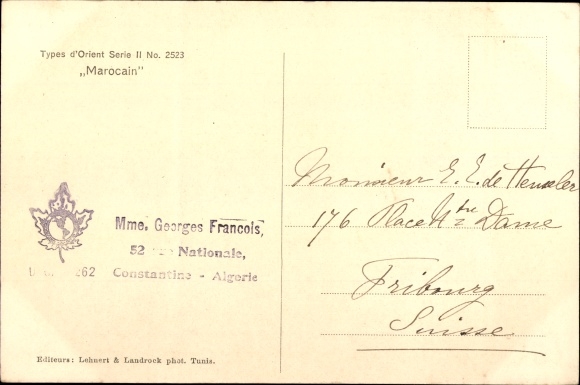 Types d'Orient Serie II No. 2523
„Marocain"
Mme. Georges Francois,
52 Nationale,
262 Constantine - Algerie
Monsieur E. E. de
176 Place Ntre Dame
Fribourg
Suisse
Editeurs: Lehnert & Landrock phot. Tunis.